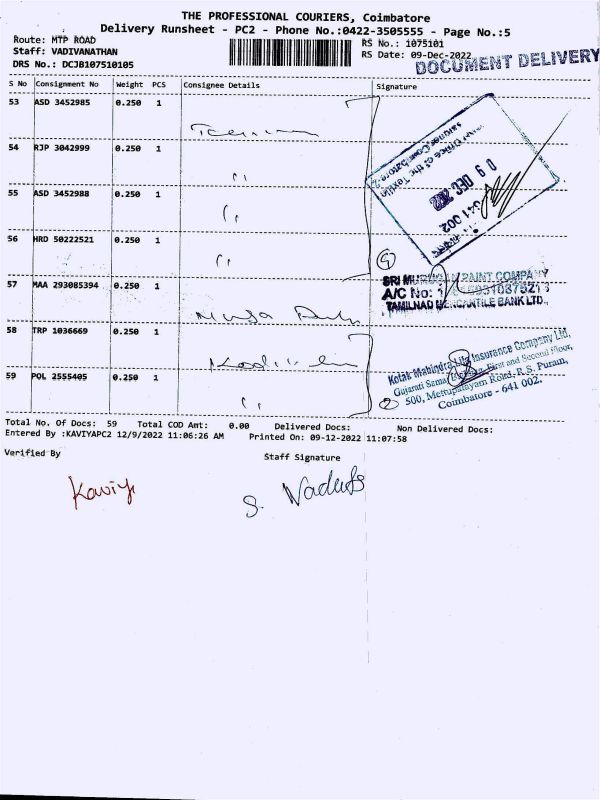 THE PROFESSIONAL COURIERS, Coimbatore
Delivery Runsheet - PC2 - Phone No.:0422-3505555 - Page No.:5
Route: MTP ROAD
RS No.: 1075101
Staff: VADIVANATHAN
RS Date: 09-Dec-2022
DRS No.: DCJB107510105
DOCUMENT DELIVERY
S No Consignment No Weight PCS Consignee Details Signature
53 ASD 3452985 0.250 1
54 RJP 3042999 0.250 1
55 ASD 3452988 0.250 1
56 HRD 50222521 0.250 1
09 DEC 2022
641 002
4
57 MAA 293085394 0.250 1
SRI MURUGAN PAINT COMPANY
A/C No:
TAMILNAD MERCANTILE BANK LTD.,
58 TRP 1036669 0.250 1
59 POL 2555405 0.250 1
Kotak Mahindra Life Insurance Company Ltd,
Gujarati Samaj First and Second Floor,
500, Mettupalayam Road, R.S. Puram,
Coimbatore - 641 002.
2
Total No. Of Docs: 59 Total COD Amt: 0.00 Delivered Docs: Non Delivered Docs:
Entered By :KAVIYAPC2 12/9/2022 11:06:26 AM Printed On: 09-12-2022 11:07:58
Verified By
Staff Signature
Kaviya